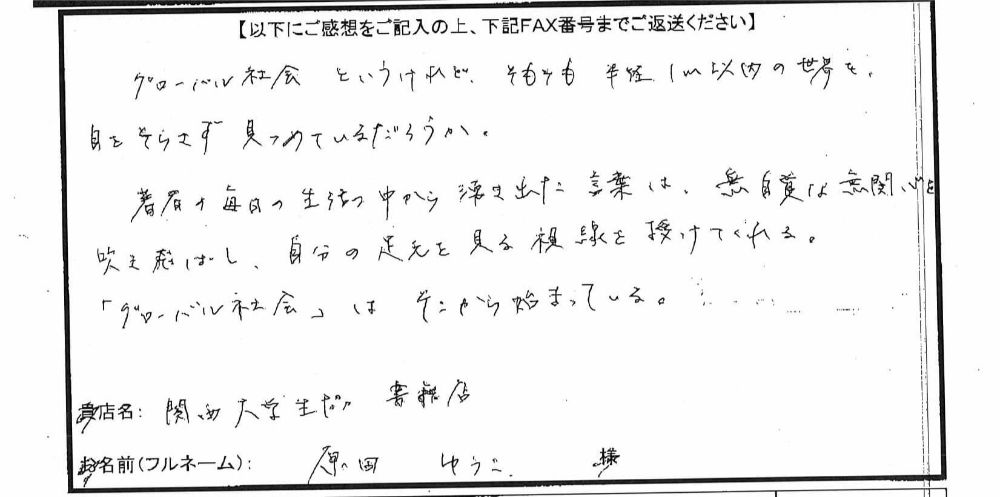 【以下にご感想をご記入の上、下記FAX番号までご返送ください】
グローバル社会というけれど、そもそも半径1m以内の世界を、
目をそらさず見つめているだろうか。
著者の毎日の生活の中から湧き出た言葉は、無自覚な無関心を
吹き飛ばし、自分の足元を見る視線を授けてくれる。
「グローバル社会」はそこから始まっている。
貴店名: 関西大学生協 書籍店
お名前(フルネーム): 原田 ゆうこ 様